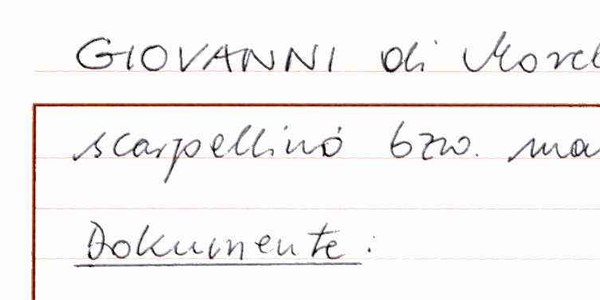 GIOVANNI di
scarpellino bzw.
Dokumente: